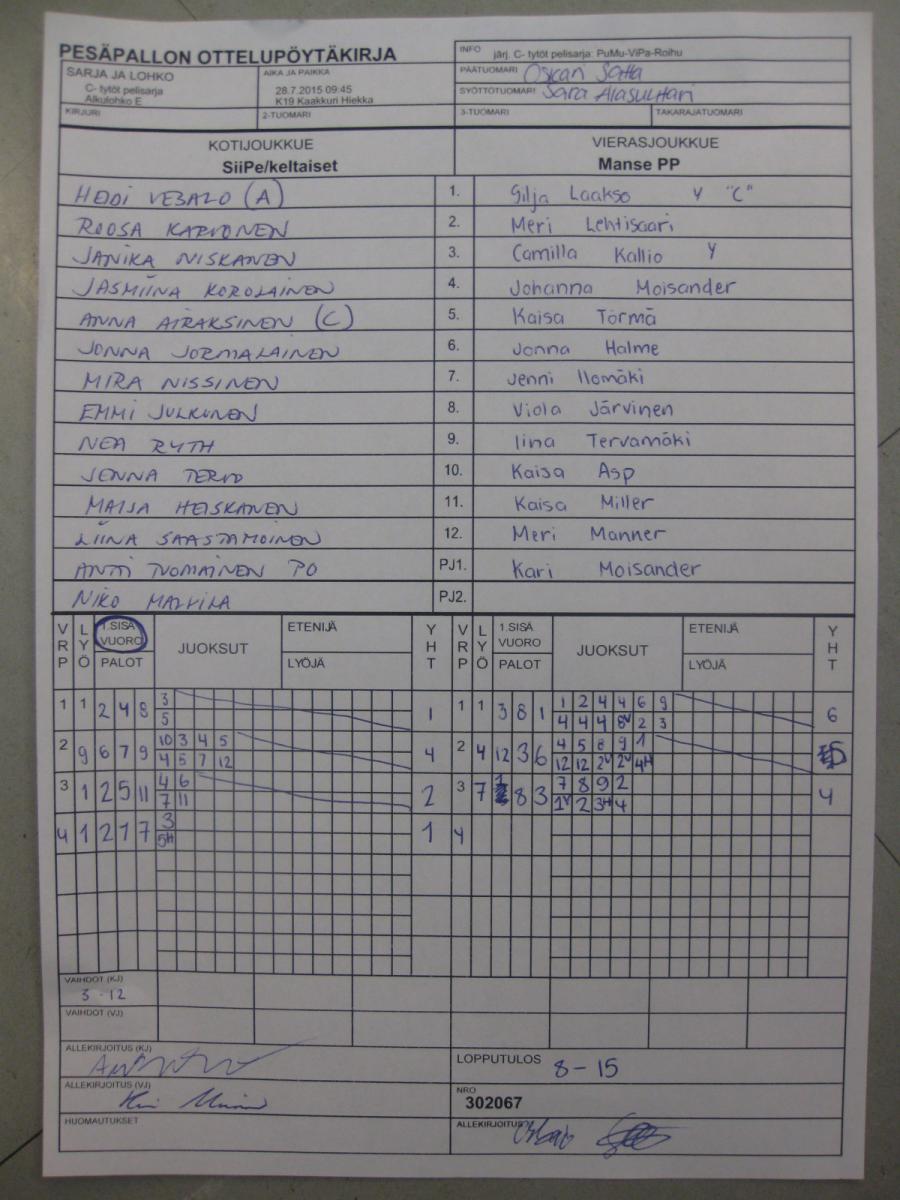 PESÄPALLON OTTELUPÖYTÄKIRJA
INFO järj. C- tytöt pelisarja: PuMu-ViPa-Roihu
SARJA JA LOHKO
C- tytöt pelisarja
Alkulohko E
AIKA JA PAIKKA
28.7.2015 09:45
K19 Kaakkuri Hiekka
PÄÄTUOMARI Oskari
SYÖTTÖTUOMARI Sara
KIRJURI 2-TUOMARI 3-TUOMARI TAKARAJATUOMARI
KOTIJOUKKUE VIERASJOUKKUE
SiiPe/keltaiset Manse PP
HEIDI (A) 1. Silja Laakso Y "C"
ROOSA KARVONEN 2. Meri Lehtisaari
JANIKA NISKANEN 3. Camilla Kallio Y
JASMIINA KOROLAINEN 4. Johanna Moisander
ANNA AIRAKSINEN (C) 5. Kaisa Törmä
JONNA JORMALAINEN 6. Jonna Halme
MIRA NISSINEN 7. Jenni Ilomäki
EMMI JULKUNEN 8. Viola Järvinen
NEA RYTH 9. Iina Tervamäki
JENNA TERVO 10. Kaisa Asp
MAIJA HEISKANEN 11. Kaisa Miller
LIINA SAASTAMOINEN 12. Meri Manner
ANTTI TUOMAINEN PO PJ1. Kari Moisander
NIKO PJ2.
VRP LYÖ 1.SISÄ VUORO PALOT JUOKSUT ETENIJÄ LYÖJÄ YHT VRP LYÖ 1.SISÄ VUORO PALOT JUOKSUT ETENIJÄ LYÖJÄ YHT
1 1 2 4 8 3 1 1 1 3 8 1 1 2 4 4 6 9 6
5 4 4 4 8V 2 3
2 9 6 7 9 10 3 4 5 4 2 4 12 3 6 4 5 8 9 1 5
4 5 7 12 12 12 2V 2V 4H
3 1 2 5 11 4 6 2 3 7 1 8 3 7 8 9 2 4
7 11 1V 2 3H 4
4 1 2 1 7 3 1 4
5H
VAIHDOT (KJ)
3 - 12
VAIHDOT (VJ)
ALLEKIRJOITUS (KJ)
LOPPUTULOS 8 - 15
ALLEKIRJOITUS (VJ)
NRO
302067
HUOMAUTUKSET
ALLEKIRJOITUS